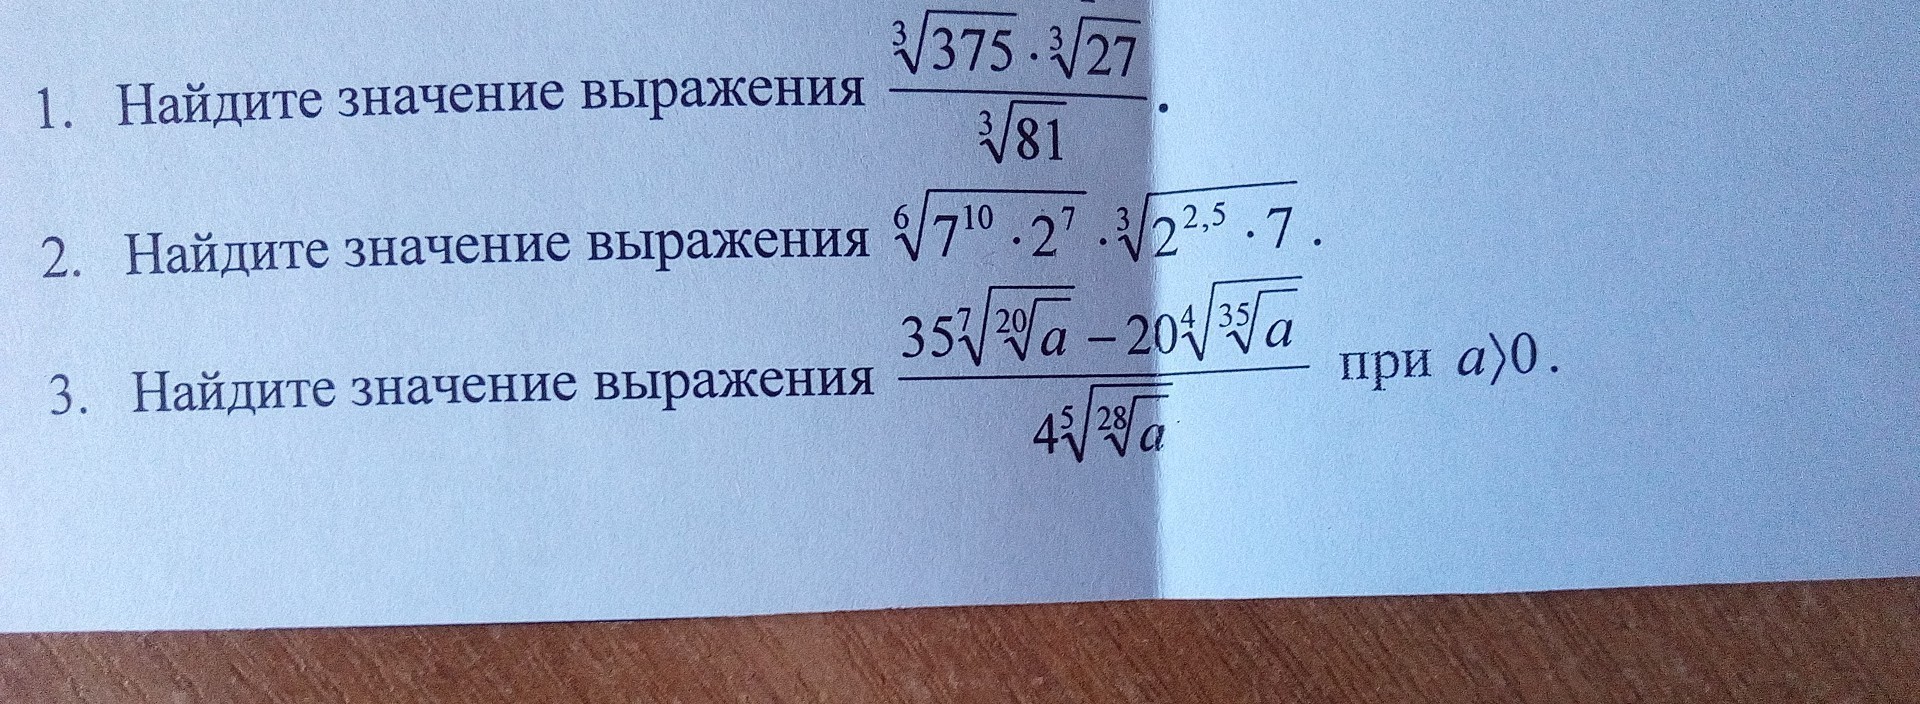 1. Найдите значение выражения $\frac{\sqrt[3]{375} \cdot \sqrt[3]{27}}{\sqrt[3]{81}}$.
2. Найдите значение выражения $\sqrt[6]{7^{10} \cdot 2^{7}} \cdot \sqrt[3]{2^{2,5} \cdot 7}$.
3. Найдите значение выражения $\frac{35\sqrt[7]{\sqrt[20]{a}} - 20\sqrt[4]{\sqrt[35]{a}}}{4\sqrt[5]{\sqrt[28]{a}}}$ при $a \rangle 0$.